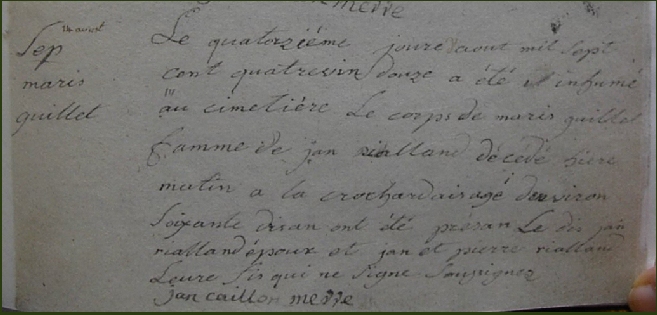 merre
14 aout
Sep
maris
guillet
Le quatorziéme jour daout mil sept
cent quatrevin douze a été inhumé
au cimetiére Le corps de maris guillet
famme de jan rialland décédé hiere
matin a la crochardais agé denviron
soixante disan ont été présan Le dis jan
rialland époux et jan et pierre rialland
Leure fis qui ne signe Sousignez
jan caillon merre